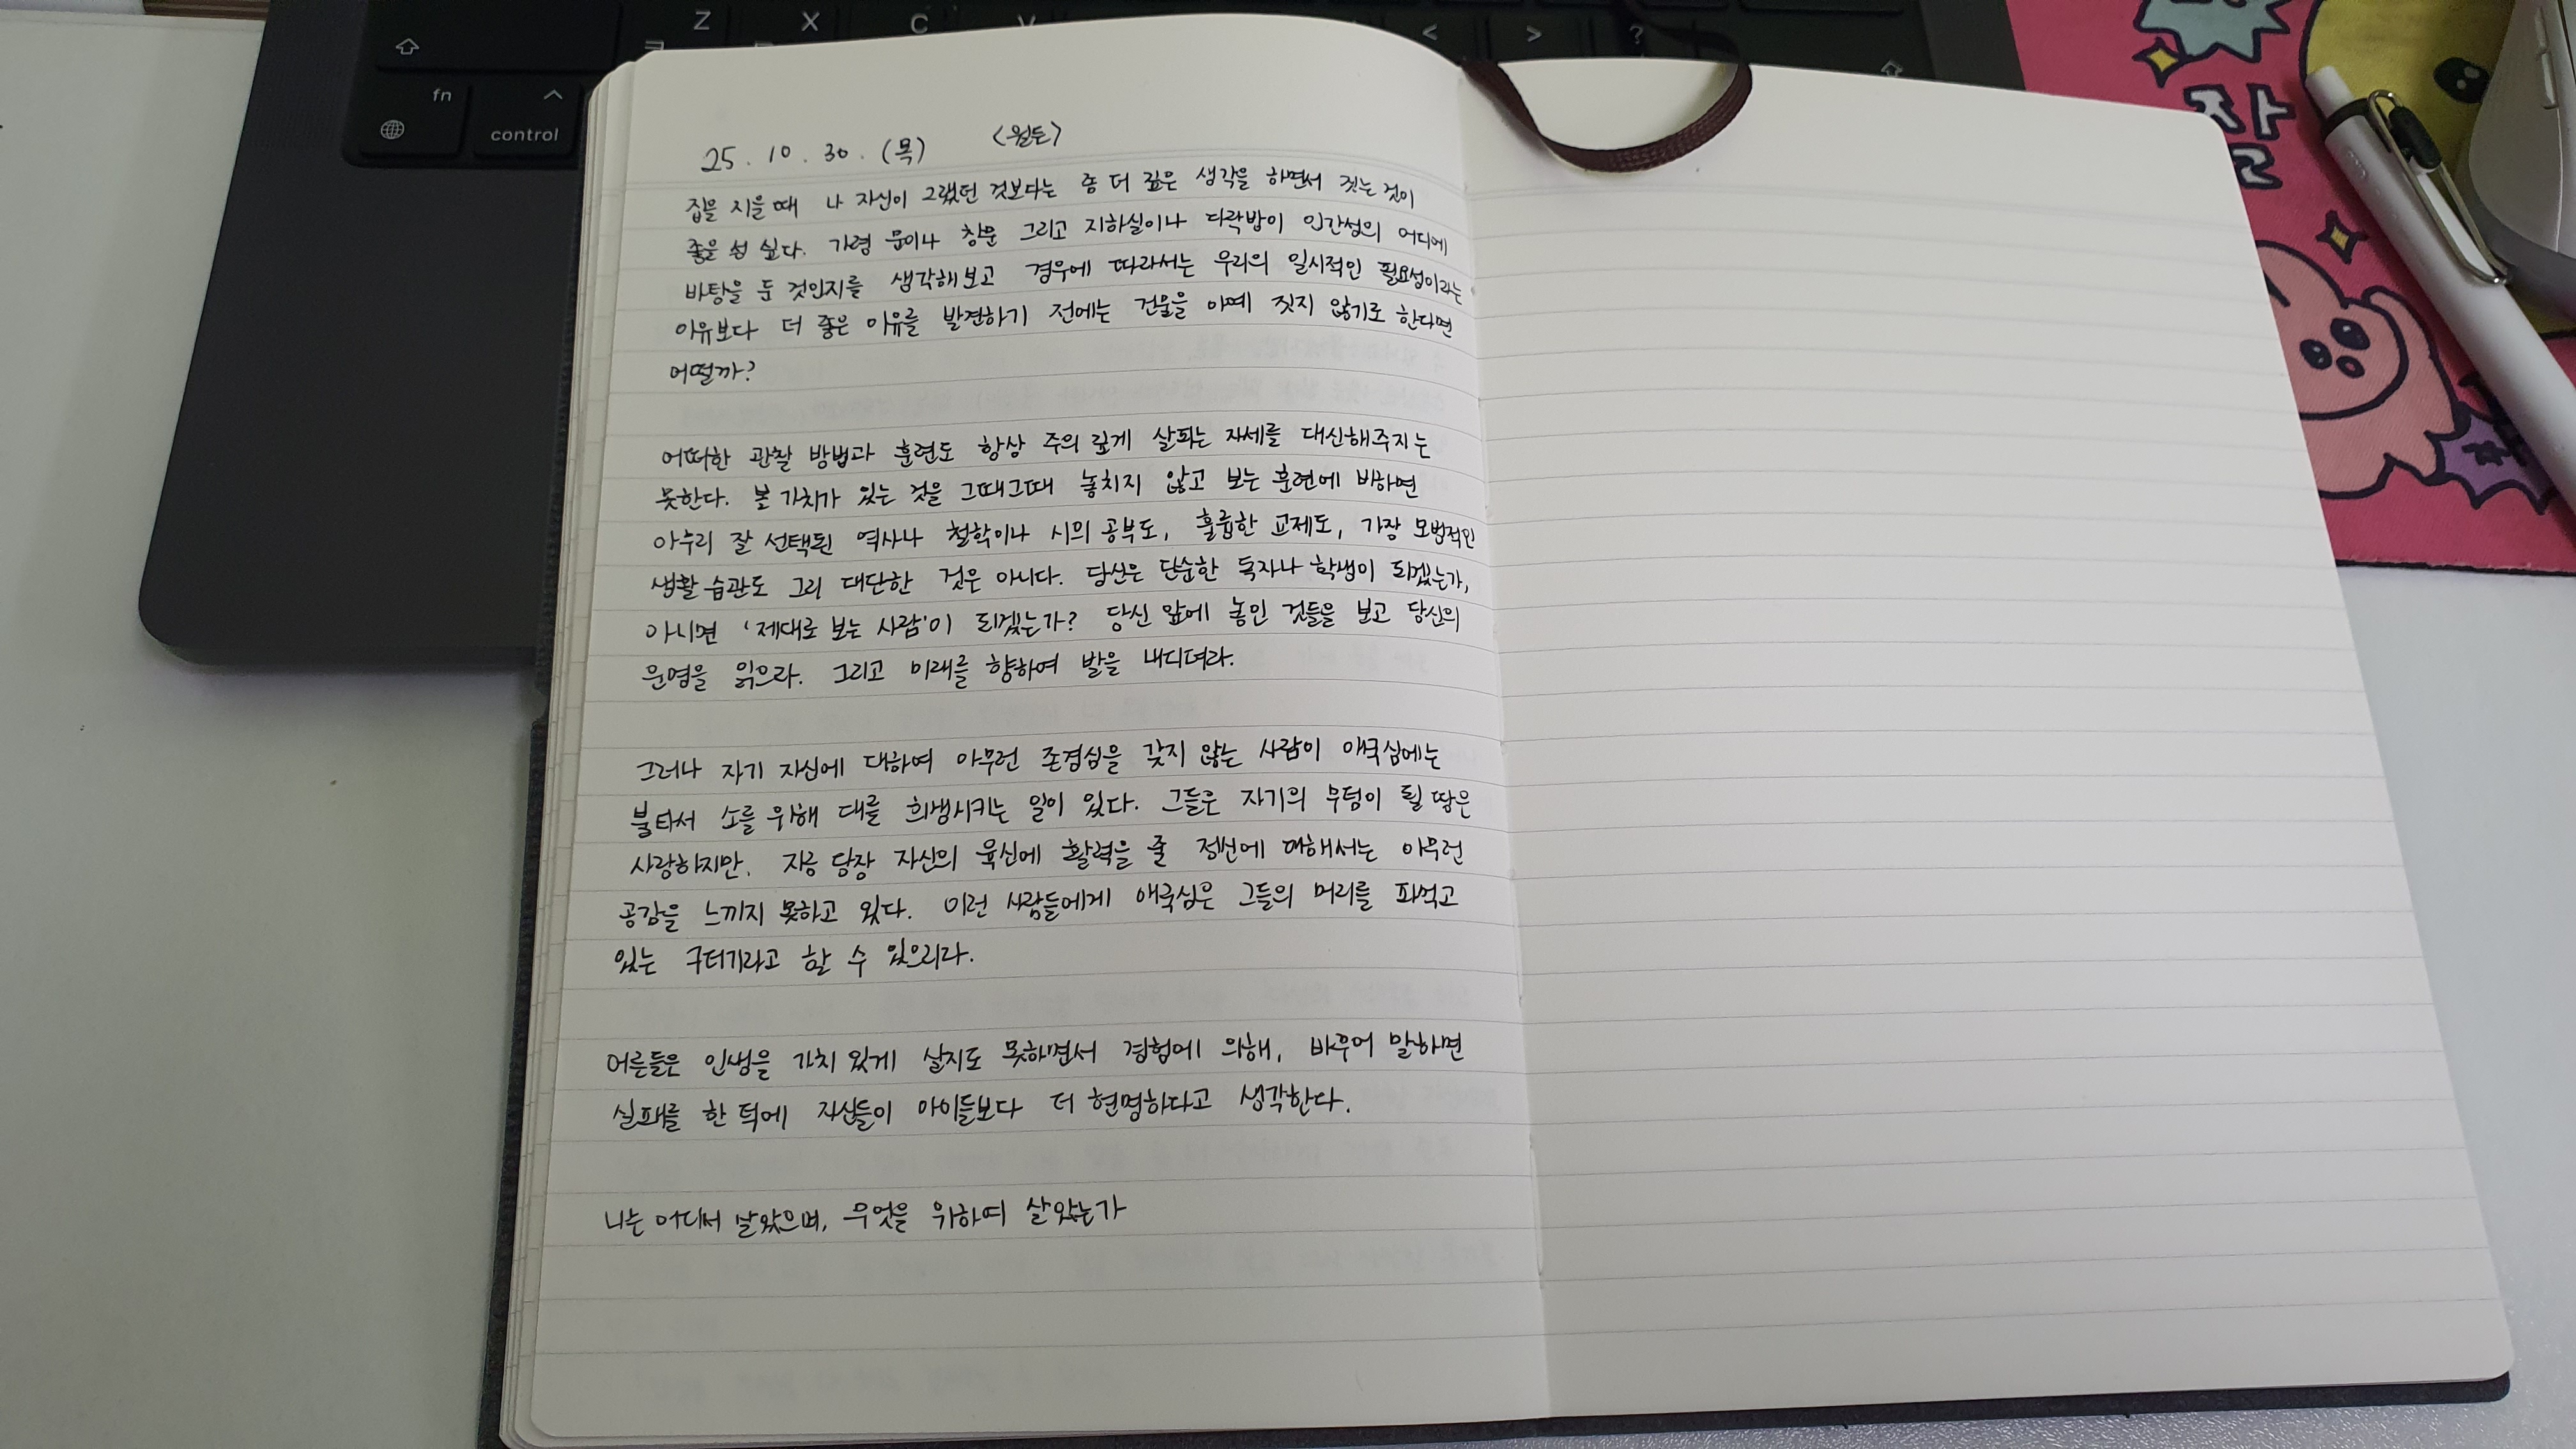 Z X C V < > ?
fn
control
잘
25. 10. 30. (목) <월든>
집을 지을 때 나 자신이 그랬던 것보다는 좀 더 깊은 생각을 하면서 짓는 것이
좋을 성 싶다. 가령 문이나 창문 그리고 지하실이나 다락방이 인간성의 어디에
바탕을 둔 것인지를 생각해보고 경우에 따라서는 우리의 일시적인 필요성이라는
이유보다 더 좋은 이유를 발견하기 전에는 건물을 아예 짓지 않기로 한다면
어떨까?
어떠한 관찰 방법과 훈련도 항상 주의 깊게 살피는 자세를 대신해주지는
못한다. 볼 가치가 있는 것을 그때그때 놓치지 않고 보는 훈련에 비하면
아무리 잘 선택된 역사나 철학이나 시의 공부도, 훌륭한 교제도, 가장 모범적인
생활 습관도 그리 대단한 것은 아니다. 당신은 단순한 독자나 학생이 되겠는가,
아니면 '제대로 보는 사람'이 되겠는가? 당신 앞에 놓인 것들을 보고 당신의
운명을 읽으라. 그리고 미래를 향하여 발을 내디뎌라.
그러나 자기 자신에 대하여 아무런 존경심을 갖지 않는 사람이 애국심에는
불타서 소를 위해 대를 희생시키는 일이 있다. 그들은 자기의 무덤이 될 땅은
사랑하지만, 지금 당장 자신의 육신에 활력을 줄 정신에 대해서는 아무런
공감을 느끼지 못하고 있다. 이런 사람들에게 애국심은 그들의 머리를 파먹고
있는 구더기라고 할 수 있으리라.
어른들은 인생을 가치 있게 살지도 못하면서 경험에 의해, 바꾸어 말하면
실패를 한 덕에 자신들이 아이들보다 더 현명하다고 생각한다.
나는 어디서 살았으며, 무엇을 위하여 살았는가